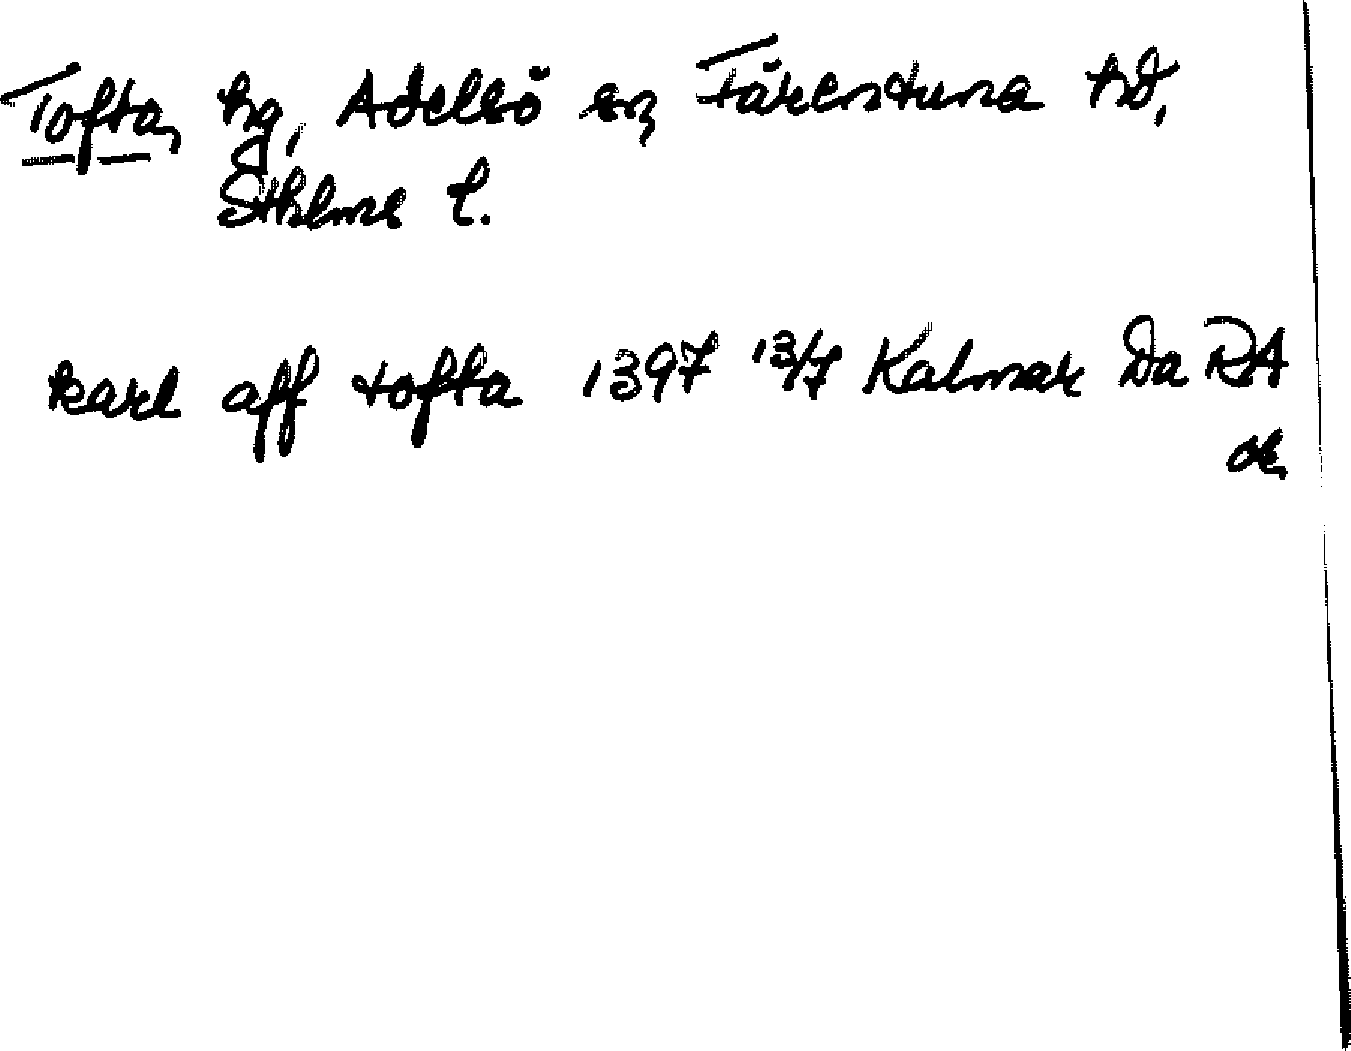 Tofta, hg, Adelsö sn, Färentuna hd,
Sthlms l.
karl aff tofta 1397 13/7 Kalmar Da RA
or,